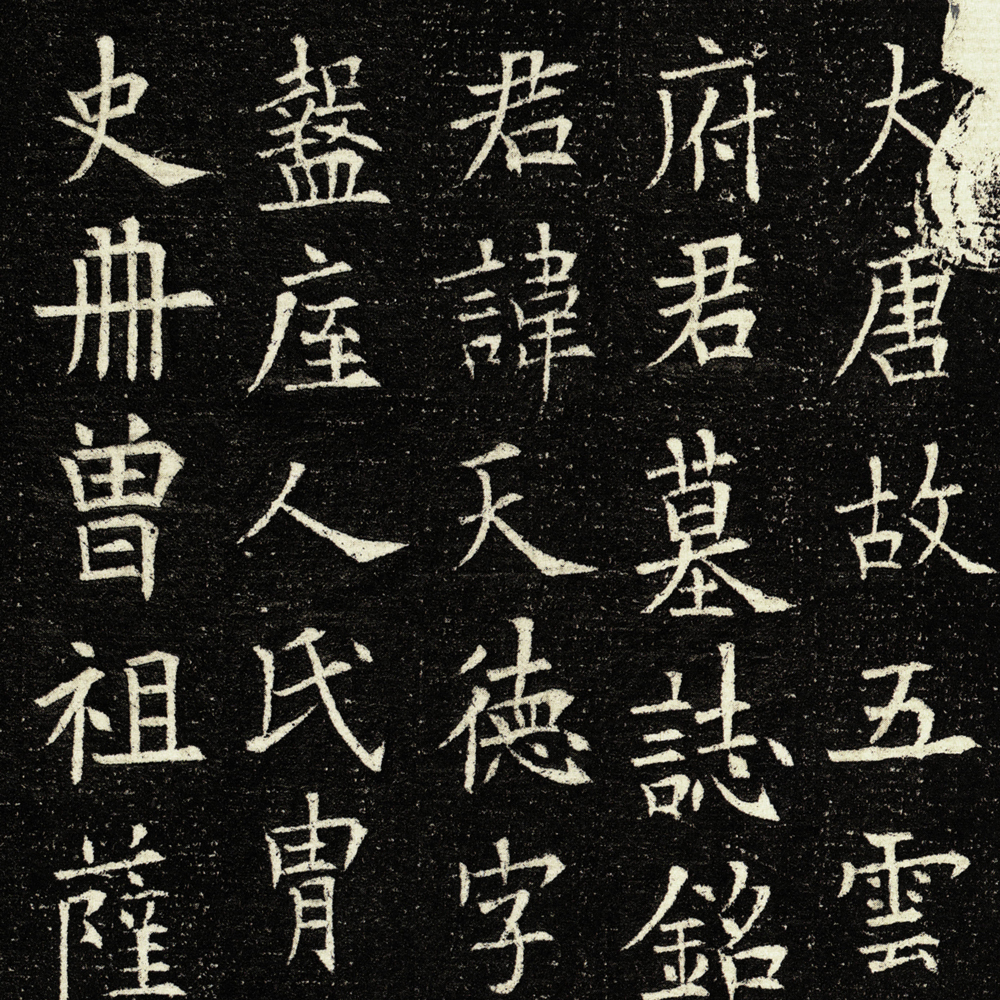 大唐故五雲
府君墓誌銘
君諱天德字
盩庢人氏胄
史冊曾祖薩